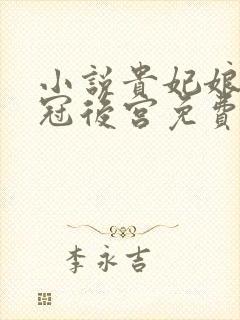 小說貴妃娘
冠後宮免費
李永吉